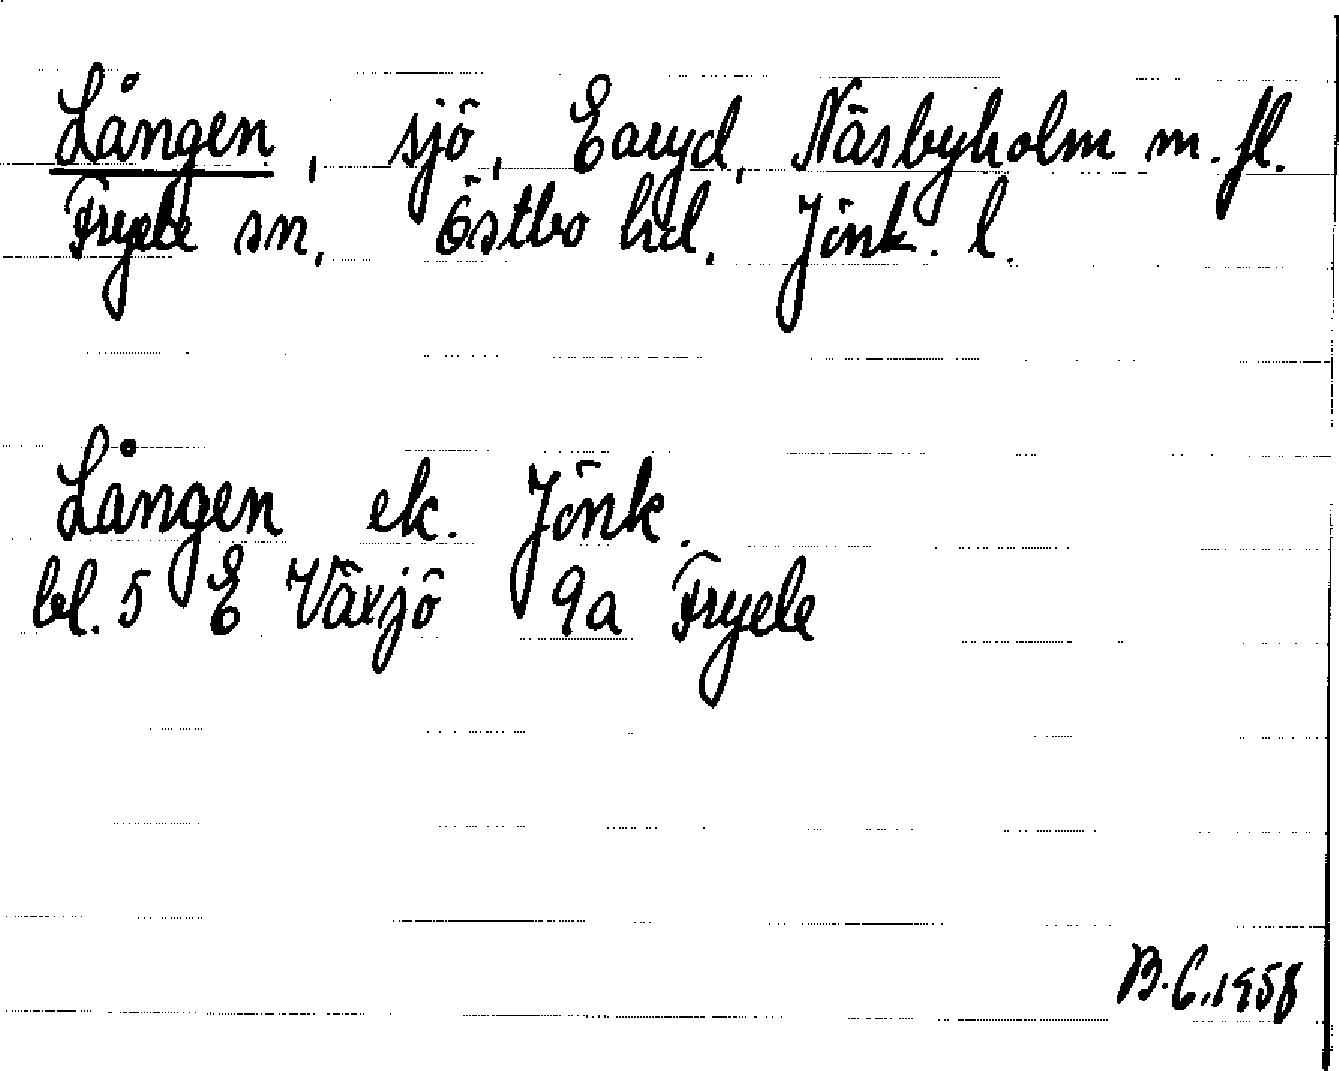 Lången, sjö, Earyd, Näsbyholm m. fl.
Fryele sn, Östbo hd, Jönk. l.
Lången ek. Jönk.
bl. 5 E Växjö 9a Fryele
B. C. 1958